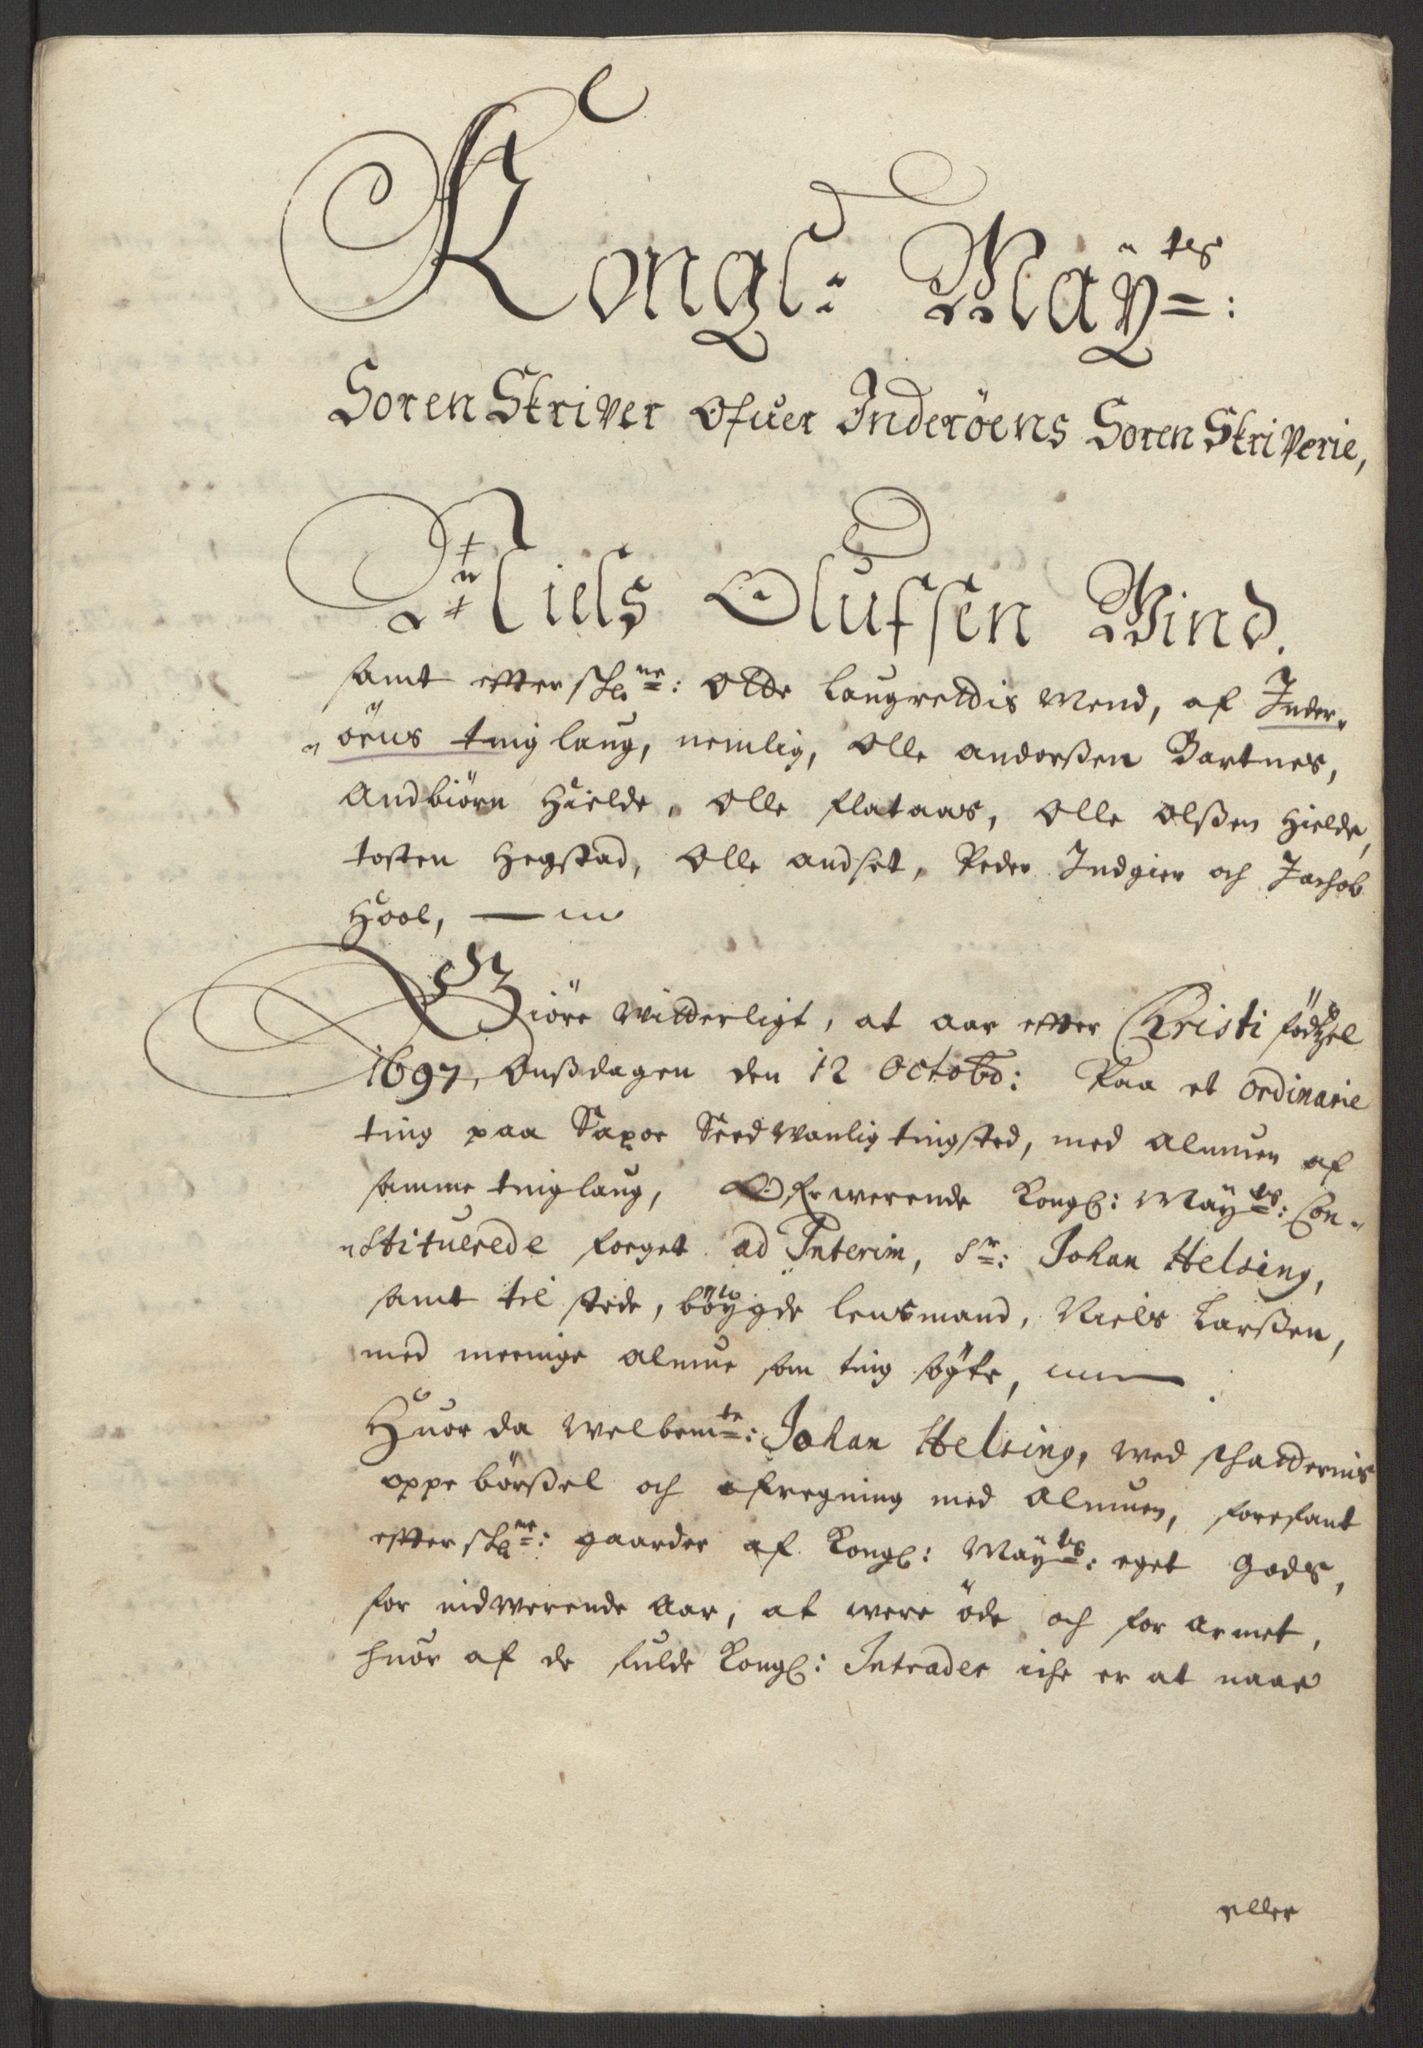 Kongl: Maÿ:tes
Soren Skriver Ofuer Inderöens Soren Skriverie,
Niels Olufsen Wind.
samt effterskr:ne: Otte Laugrettis Mend, af Inder-
öens tinglaug, nemlig, Olle Anderßen Bartnes,
Andbiörn Hielde, Olle Flataas, Olle Olßen Hielde,
tosten Hegstad, Olle Andset, Peder Indgier och Jachob
Hool,
Giöre Witterligt, at aar effter Christi födtzel
1697, Onßdagen den 12 Octobr: Paa et ordinarie
ting paa Saxoe Sedwanlig tingsted, med Almuen af
samme tinglaug, Ofwerwerende Kongl: Maÿts: Con-
stituerede foeget ad Interim, Sr: Johan Helsing,
samt til stede, böÿgde lensmand, Niels Larßen,
med meenige almue som ting sögte,
Huor da Welbemte: Johan Helsing, wed schatternis
oppe börßel och afregning med Almuen, forefant
effterskr:ne: gaarder af Kongl: Maÿts: eget Gods,
for nidwerende Aar, at were öde och for armet,
huor af de fulde Kongl: Intrader iche er at naae
eller